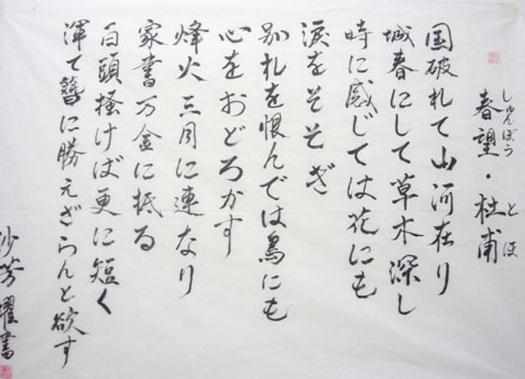 春望・杜甫
しゅんぼう
とほ
国破れて山河在り
城春にして草木深し
時に感じては花にも
涙をそそぎ
別れを恨んでは鳥にも
心をおどろかす
烽火三月に連なり
家書万金に抵る
白頭掻けば更に短く
渾て簪に勝えざらんと欲す